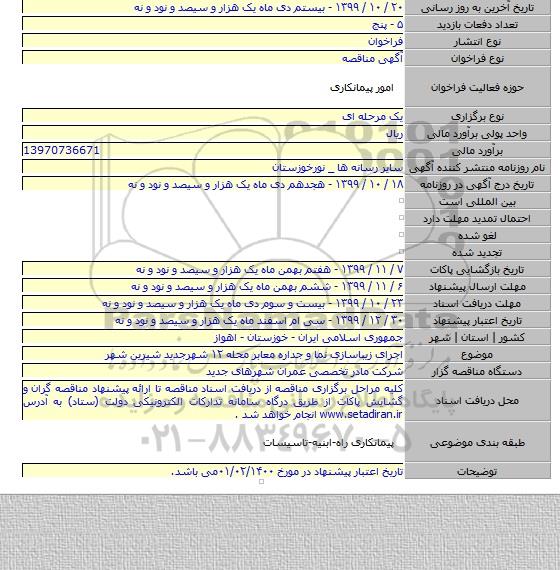 تاریخ آخرین به روز رسانی ۲۰ / ۱۰ / ۱۳۹۹ - بیستم دی ماه یک هزار و سیصد و نود و نه
تعداد دفعات بازدید ۵ - پنج
نوع انتشار فراخوان
نوع فراخوان آگهی مناقصه
حوزه فعالیت فراخوان امور پیمانکاری
نوع برگزاری یک مرحله ای
واحد پولی برآورد مالی ریال
برآورد مالی 13970736671
نام روزنامه منتشر کننده آگهی سایر رسانه ها _ نورخوزستان
تاریخ درج آگهی در روزنامه ۱۸ / ۱۰ / ۱۳۹۹ - هجدهم دی ماه یک هزار و سیصد و نود و نه
بین المللی است
احتمال تمدید مهلت دارد
لغو شده
تجدید شده
تاریخ بازگشایی پاکات ۷ / ۱۱ / ۱۳۹۹ - هفتم بهمن ماه یک هزار و سیصد و نود و نه
مهلت ارسال پیشنهاد ۶ / ۱۱ / ۱۳۹۹ - ششم بهمن ماه یک هزار و سیصد و نود و نه
مهلت دریافت اسناد ۲۳ / ۱۰ / ۱۳۹۹ - بیست و سوم دی ماه یک هزار و سیصد و نود و نه
تاریخ اعتبار پیشنهاد ۳۰ / ۱۲ / ۱۳۹۹ - سی ام اسفند ماه یک هزار و سیصد و نود و نه
کشور | استان | شهر جمهوری اسلامی ایران - خوزستان - اهواز
موضوع اجرای زیباسازی نما و جداره معابر محله ۱۲ شهرجدید شیرین شهر
دستگاه مناقصه گزار شرکت مادر تخصصی عمران شهرهای جدید
محل دریافت اسناد کلیه مراحل برگزاری مناقصه از دریافت اسناد مناقصه تا ارائه پیشنهاد مناقصه گران و
گشایش پاکات از طریق درگاه سامانه تدارکات الکترونیکی دولت (ستاد) به آدرس
www.setadiran.ir انجام خواهد شد .
طبقه بندی موضوعی پیمانکاری راه-ابنیه-تاسیسات
توضیحات تاریخ اعتبار پیشنهاد در مورخ ۰۱/۰۲/۱۴۰۰می باشد.
۰۲۱-۸۸۳۴۹۶۷۰-۵